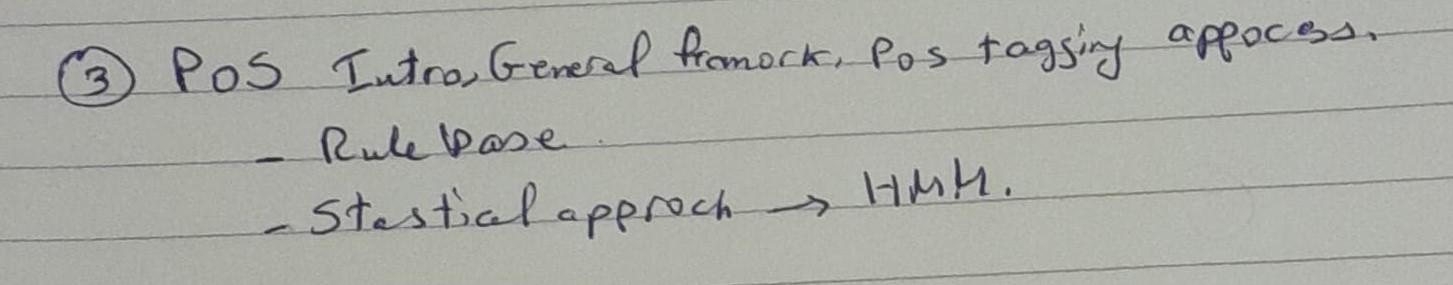 ③ POS Intro, General framock, Pos tagging appoces.
- Rule base
- Stastical approch → HMM.